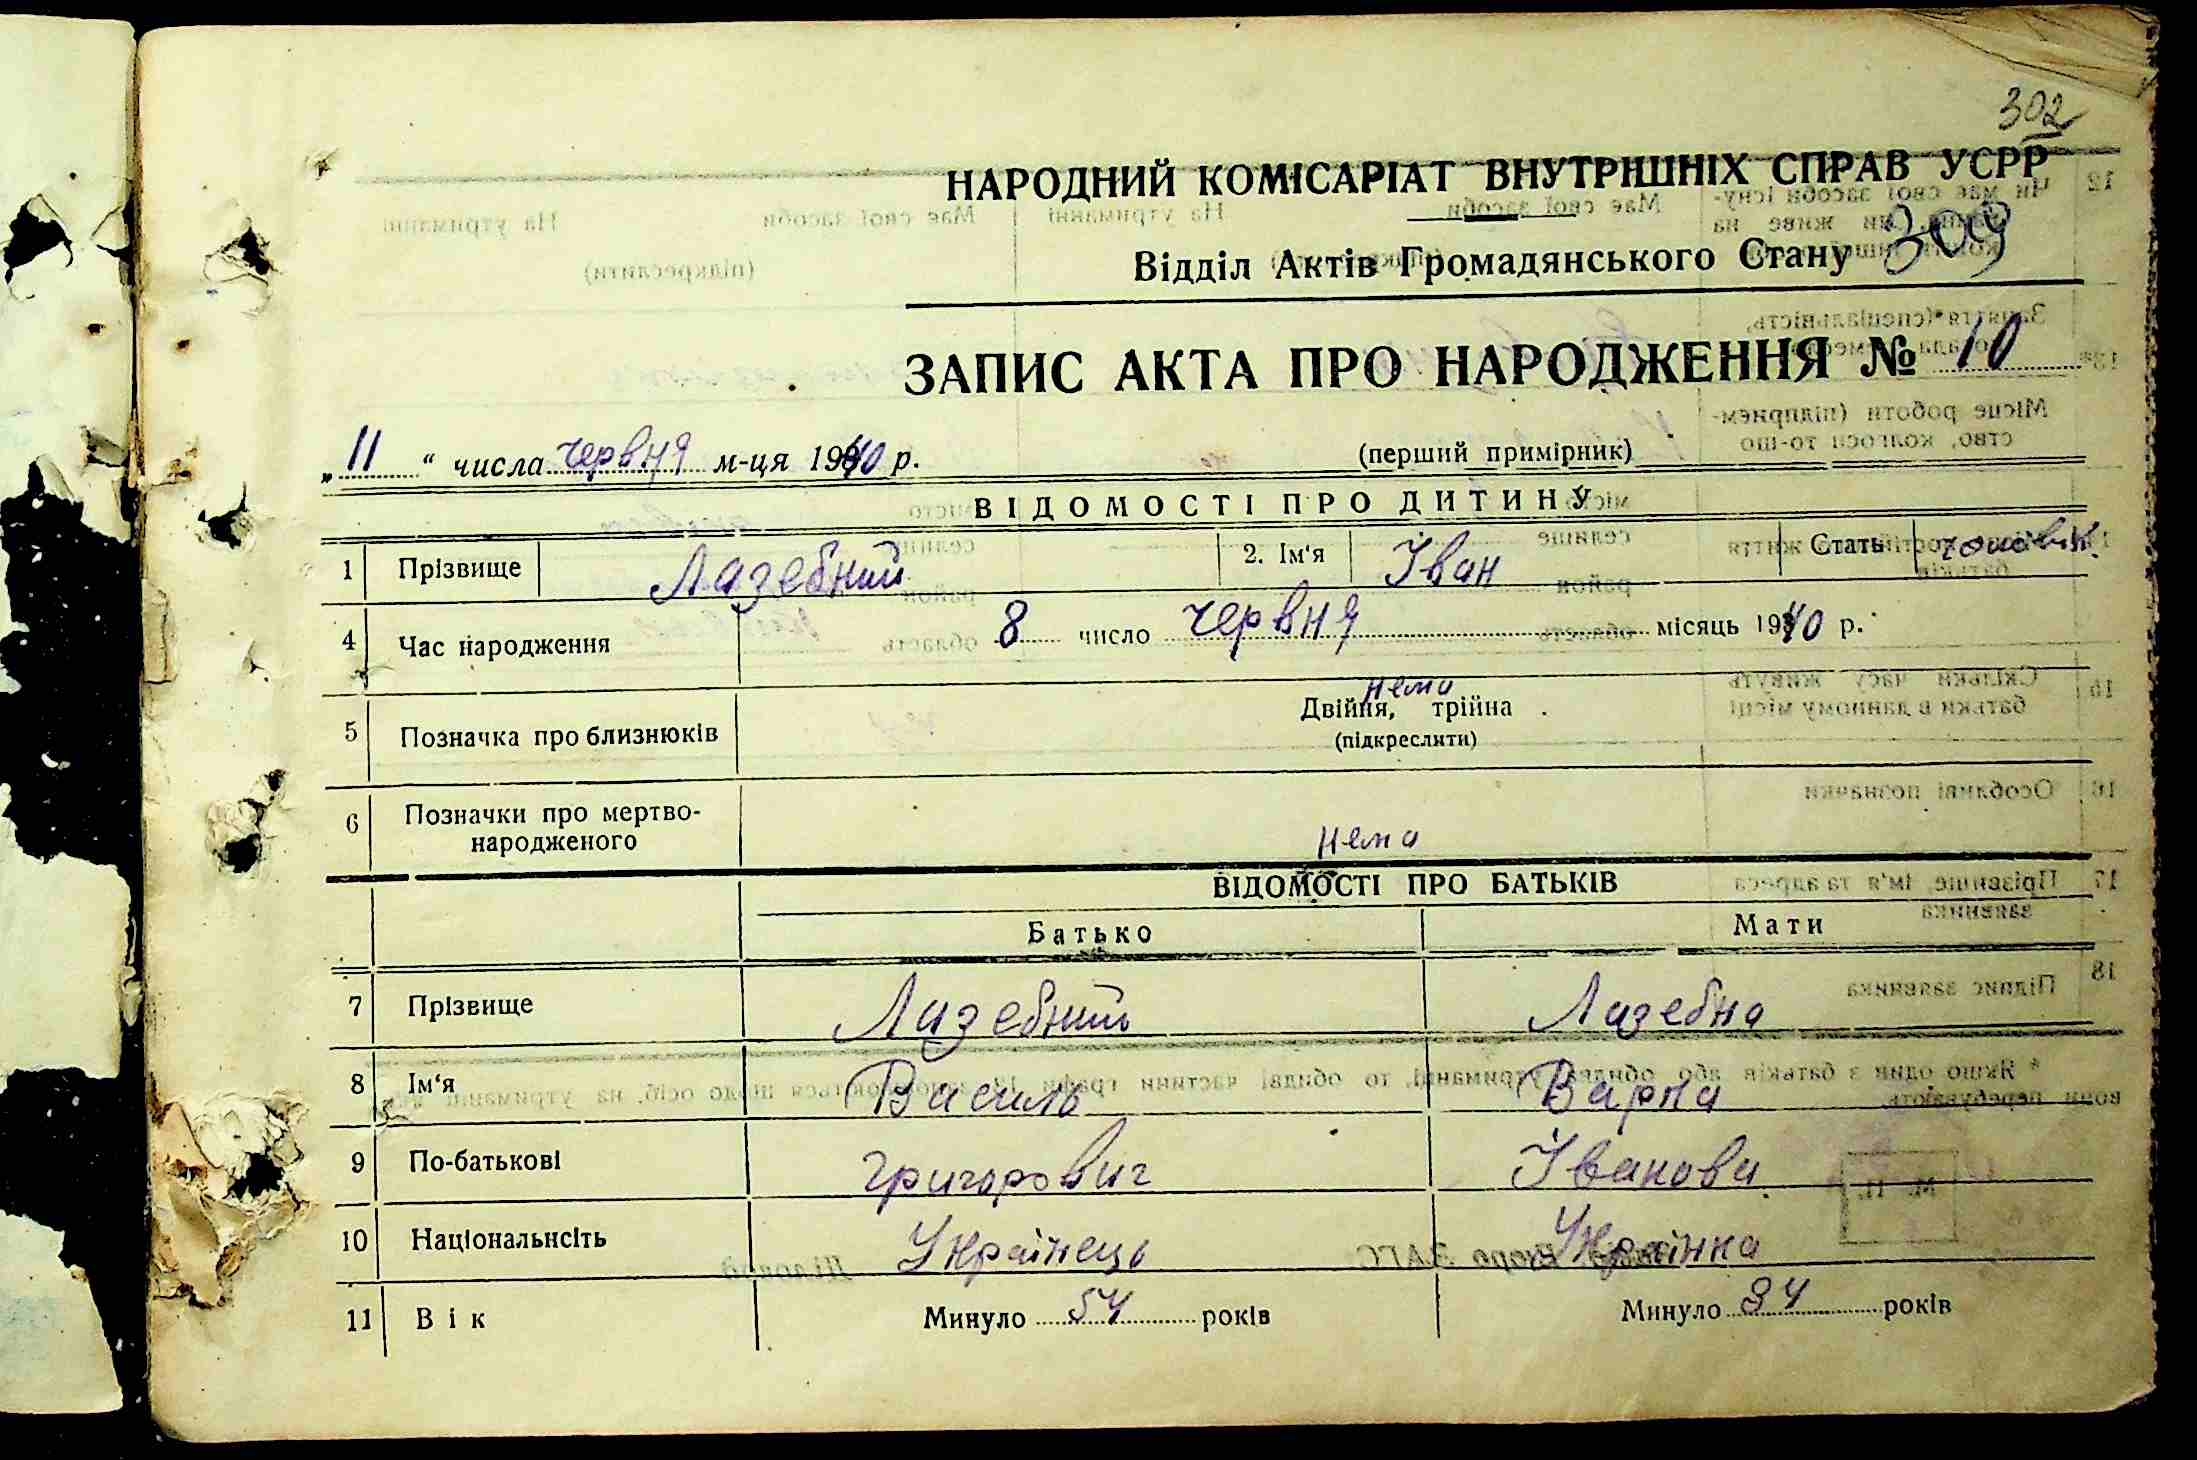 302
НАРОДНИЙ КОМІСАРІАТ ВНУТРІШНІХ СПРАВ УСРР
Відділ Актів Громадянського Стану 309
ЗАПИС АКТА ПРО НАРОДЖЕННЯ № 10
„ 11 “ числа червня м-ця 1940 р. (перший примірник)
ВІДОМОСТІ ПРО ДИТИНУ
1 Прізвище Лазебний 2. Ім'я Іван Стать чоловік.
4 Час народження 8 число червня місяць 1940 р.
нема
5 Позначка про близнюків Двійня, трійна
(підкреслити)
6 Позначки про мертво-
народженого нема
ВІДОМОСТІ ПРО БАТЬКІВ
Батько Мати
7 Прізвище Лазебний Лазебна
8 Ім'я Василь Варка
9 По-батькові Григорович Іванова
10 Національнсіть Українець Українка
11 Вік Минуло 54 років Минуло 34 років